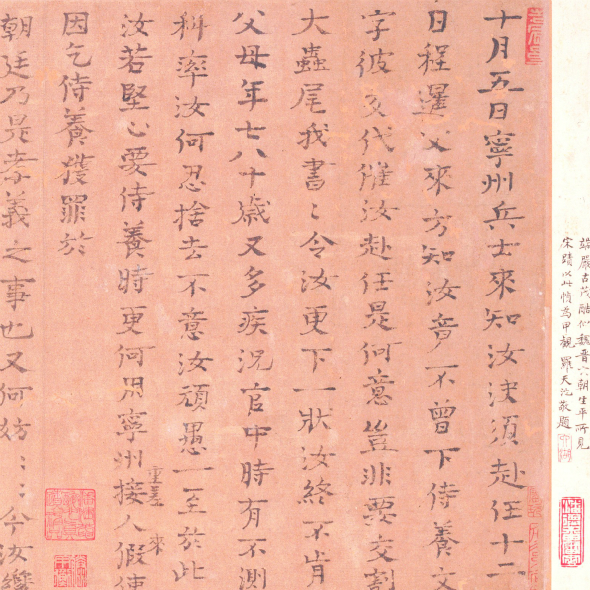 端嚴古茂酷似魏晉六朝生平所見
宋蹟以此幀為甲觀 羅天池敬題
十月五日寧州兵士來知汝決須赴任十二
日程暹父來方知汝意不曾下侍養文
字彼交代催汝赴任是何意豈非要交割
大蟲尾我書〻令汝更下一狀汝終不肯
父母年七八十歲又多疾況官中時有不測
科率汝何忍捨去不意汝頑愚一至於此
汝若堅心要侍養時更何用寧州接人假使
重差 來
因乞侍養獲罪於
朝廷乃是孝義之事也又何妨〻〻今汝纔